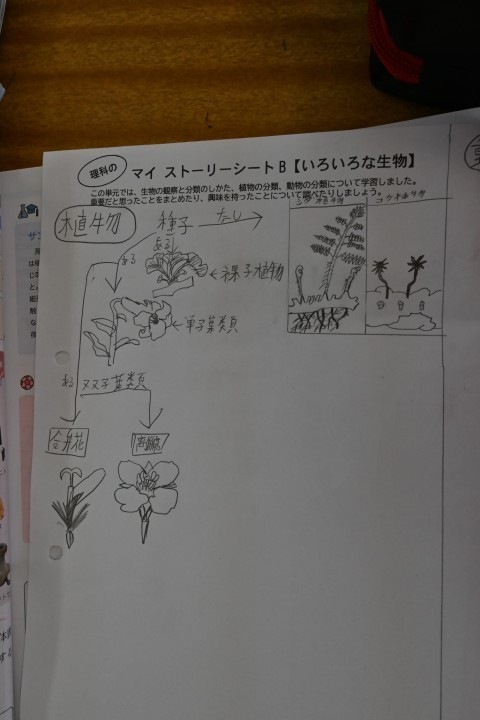 理科の
マイ ストーリーシートB【いろいろな生物】
この単元では、生物の観察と分類のしかた、植物の分類、動物の分類について学習しました。
重要だと思ったことをまとめたり、興味を持ったことについて調べたりしましょう。
植物
種子
なし
シダ植物
コケ植物
ある
裸子植物
単子葉類
ある
双子葉類
合弁花
離弁花